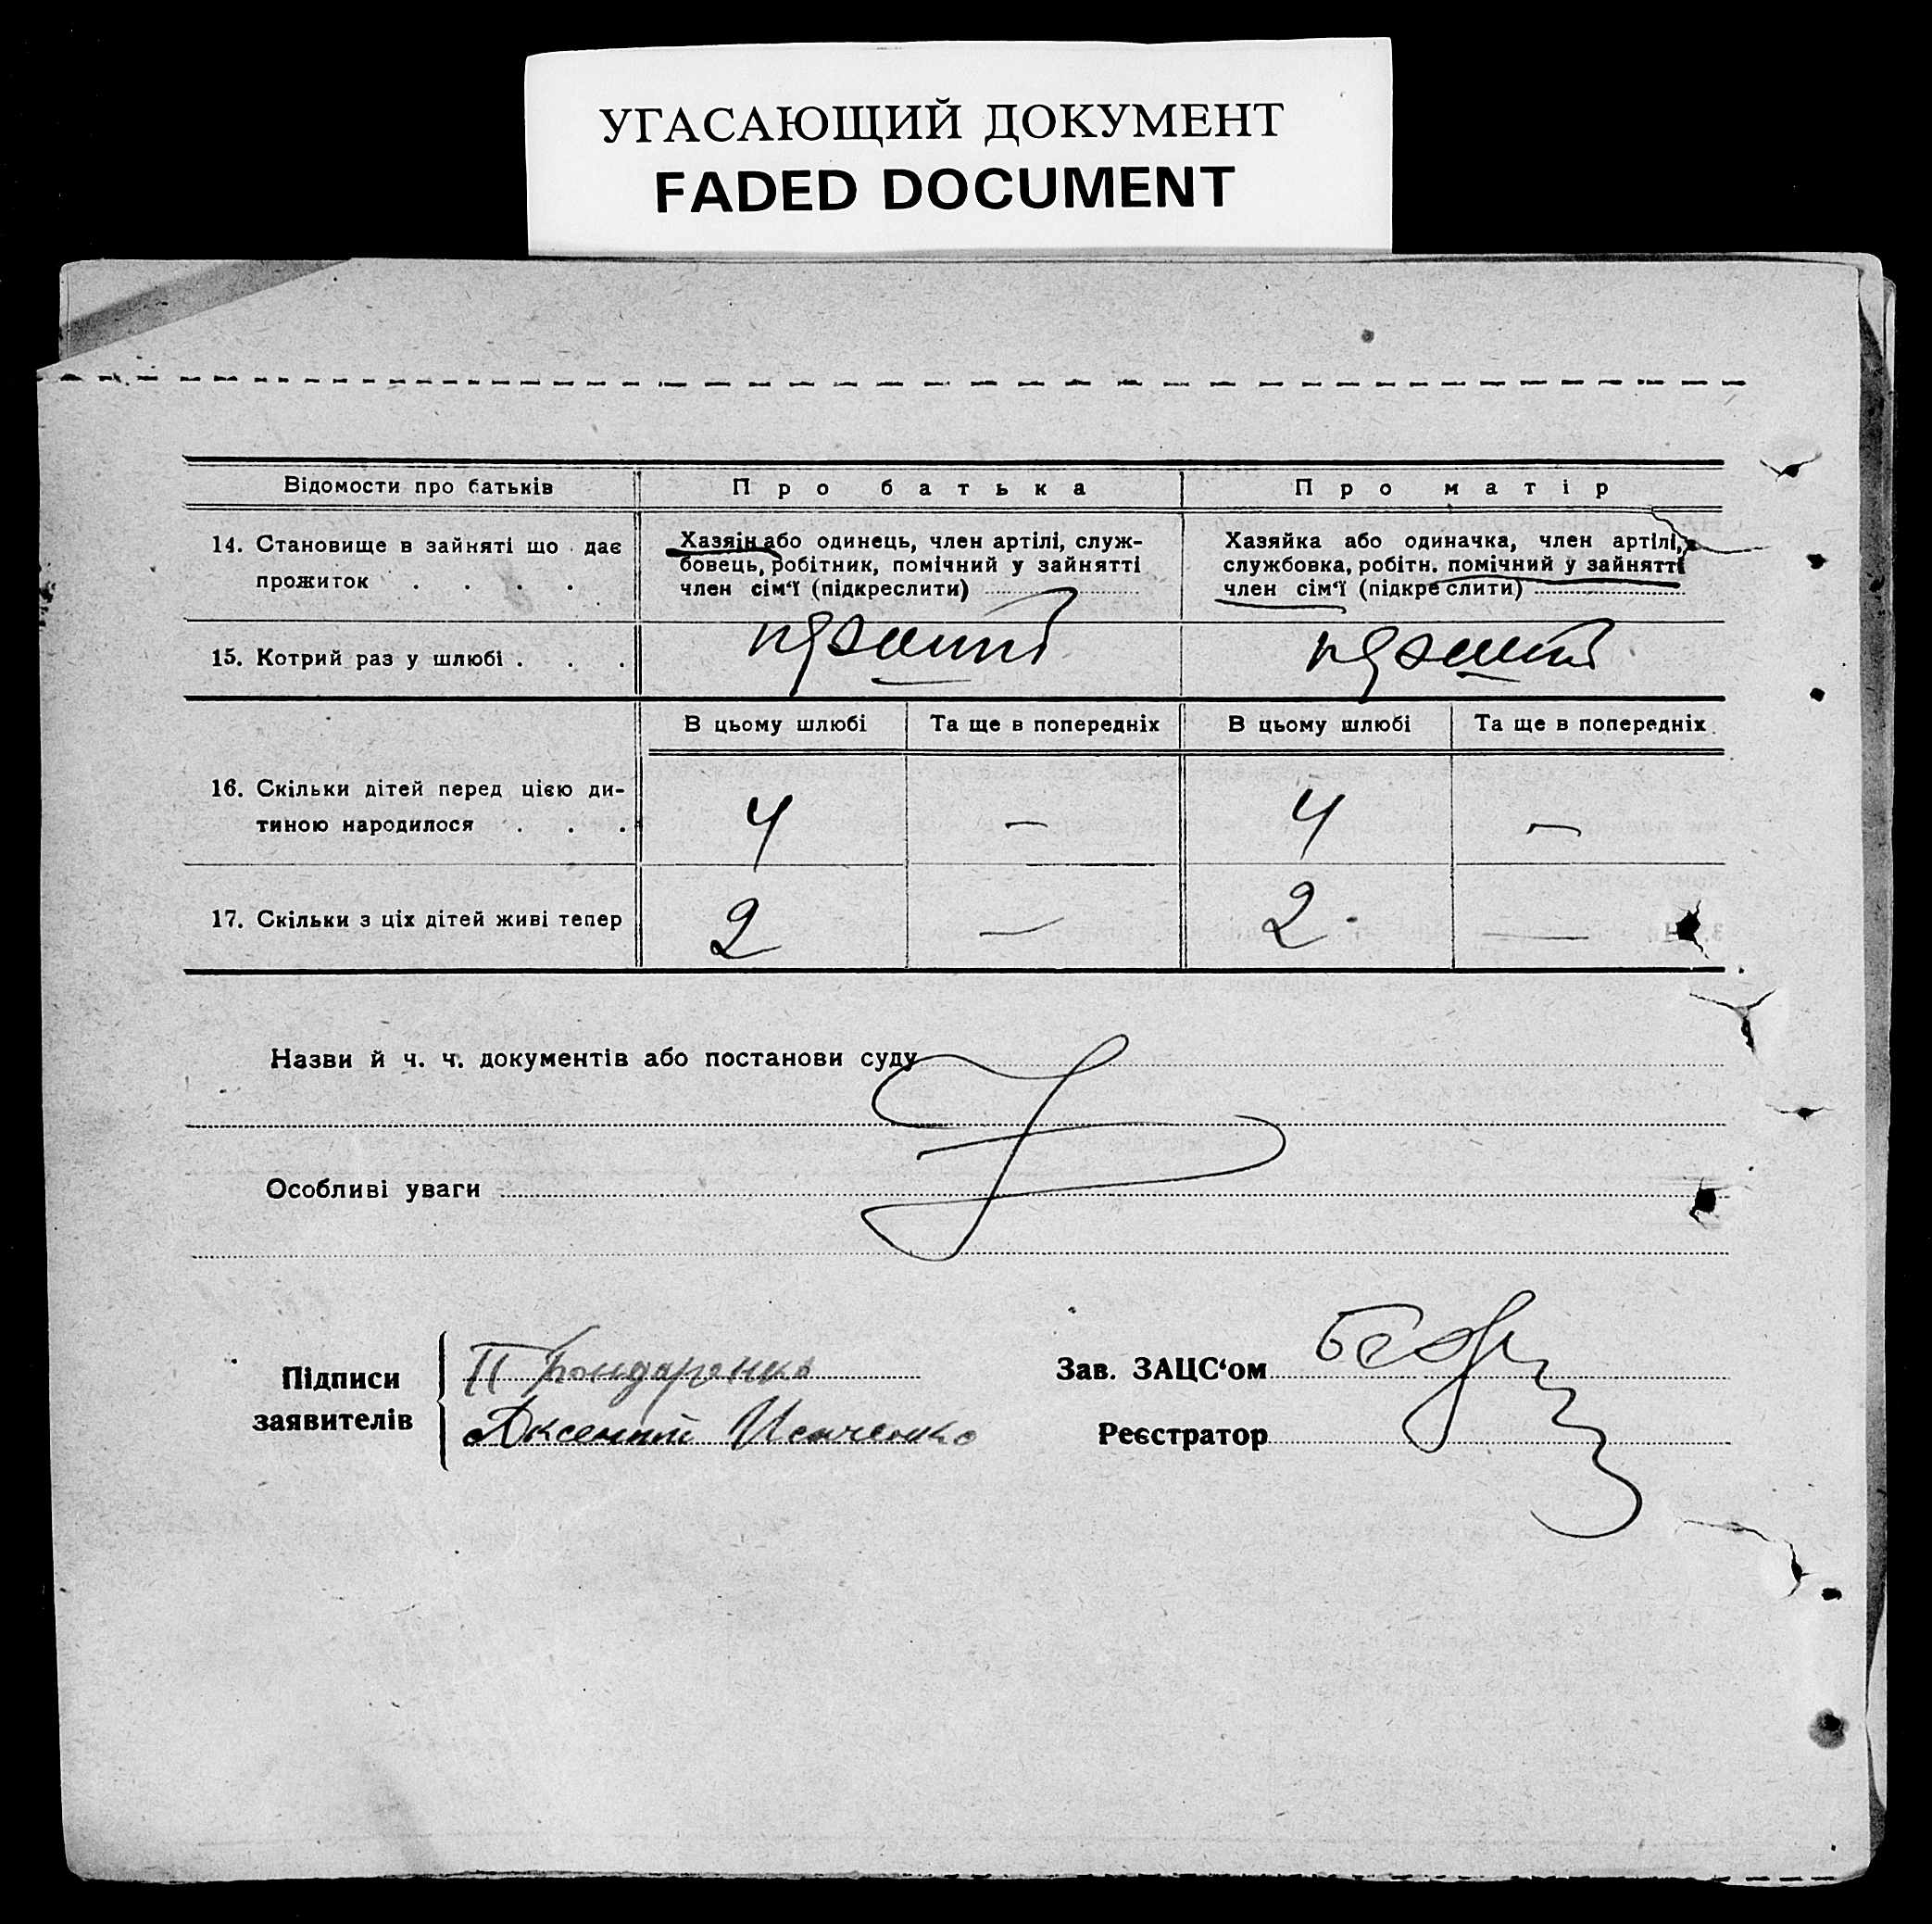 УГАСАЮЩИЙ ДОКУМЕНТ
FADED DOCUMENT
Відомости про батьків
Про батька
Про матір
14. Становище в зайняті що дає
прожиток . . . .
Хазяін або одинець, член артілі, служ-
бовець, робітник, помічний у зайнятті
член сім‘ї (підкреслити)
Хазяйка або одиначка, член артілі,
службовка, робітн. помічний у зайнятті
член сім‘ї (підкреслити)
15. Котрий раз у шлюбі . . .
первий
первий
В цьому шлюбі
Та ще в попередніх
В цьому шлюбі
Та ще в попередніх
16. Скільки дітей перед цією ди-
тиною народилося . . .
4
—
4
—
17. Скільки з ціх дітей живі тепер
2
—
2
—
Назви й ч. ч. документів або постанови суду
Особливі уваги
Підписи
заявителів
П Бондаренко
Аксентий
Зав. ЗАЦС‘ом
Реєстратор